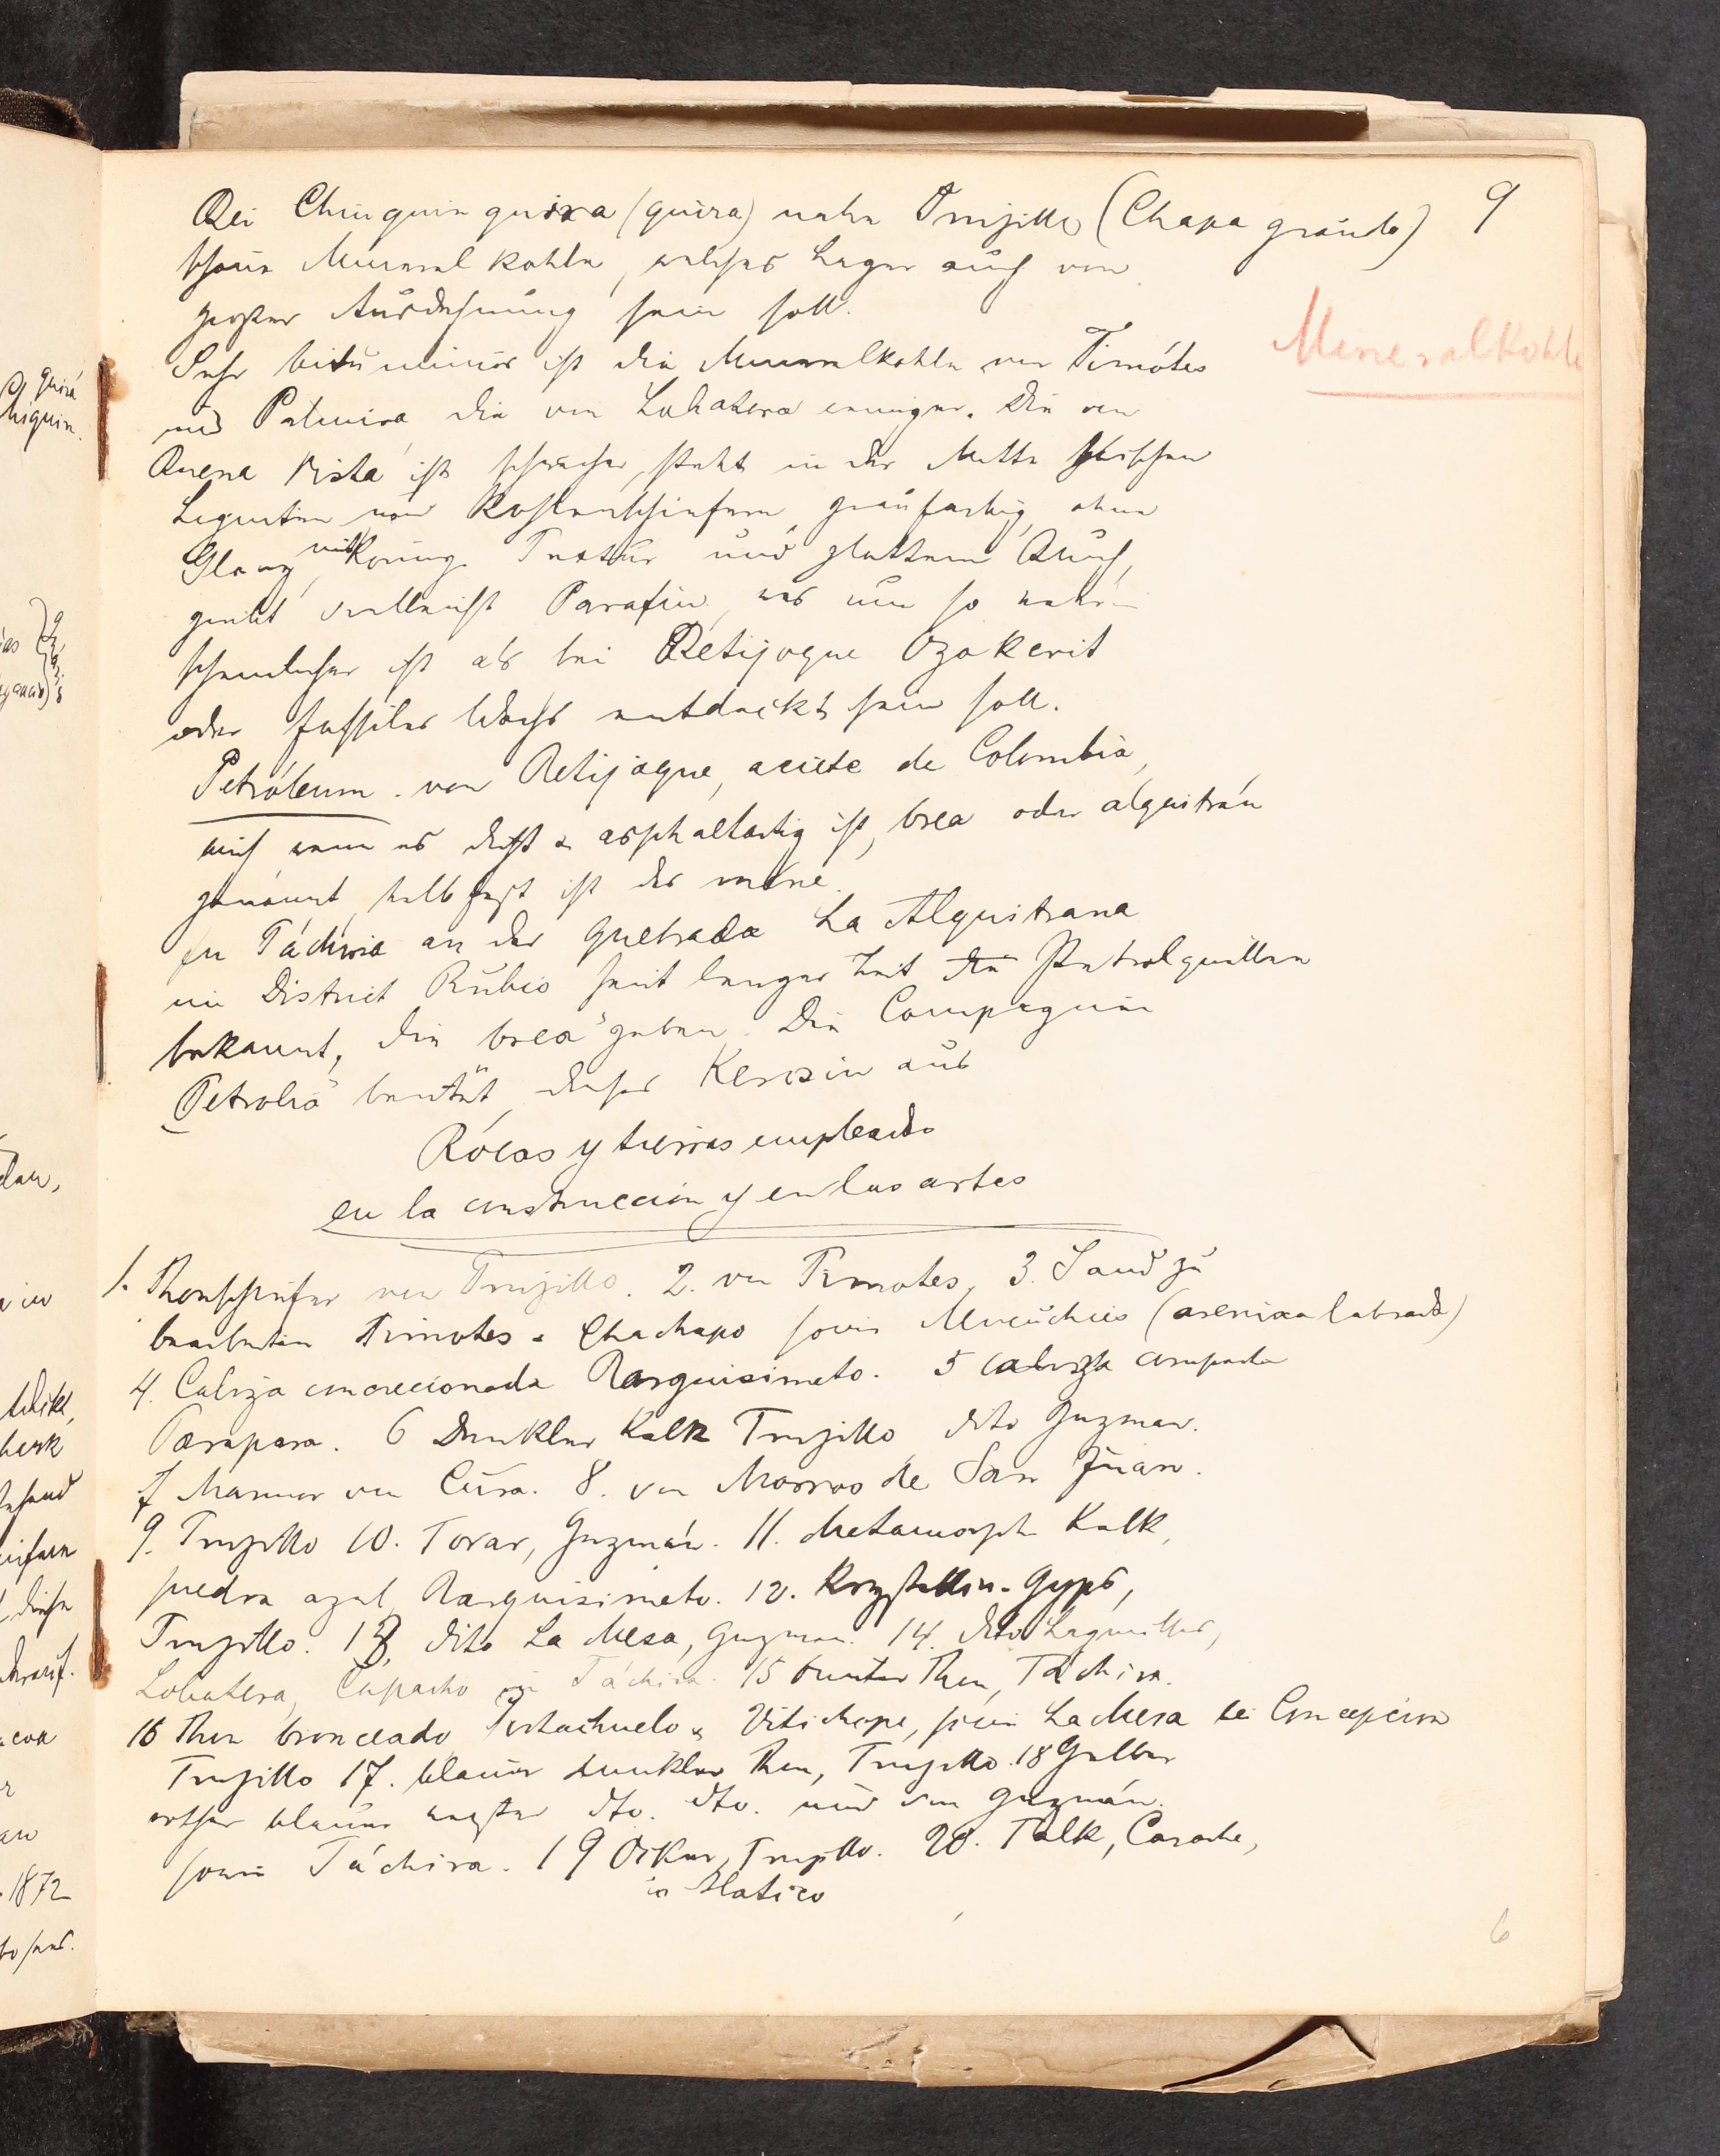 9
Bei Chinquin guira (quira) nahe Trujillo (Chapa grande)
schöne Mineralkohle, welches Lager auch von
großer Ausdehnung sein soll.
Mineralkohle
Sehr bituminös ist die Mineralkohle von Timótes
und Palmira die von Lobatera weniger. Die von
Buena Vista ist schwächer, steht in der Mitte zwischen
Ligniten und Kohlenschiefern, graufarbig, ohne
Glanz, mit körnig. Textur und glattem Bruch,
giebt vielleicht Parafin, was um so wahr-
scheinlicher ist als bei Betijoque Ozokerit
oder fossiles Wachs entdeckt sein soll.
Petróleum. von Betijoque, aciete de Colombia,
auch wenn es dicht & asphaltartig ist, brea oder alquitrán
genannt, halbfest ist der mène.
In Táchira an der Quebrada La Alquitrana
im District Rubio seit langer Zeit die Petrolquellen
bekannt, die "brea" geben. Die Compagnie
"Petrolia" beutet dieses Kerosin aus
Rócas y tierras empleado
en la construccion y en las artes
1. Thonschiefer von Trujillo. 2. von Timotes, 3. Sand zu
bearbeiten Timotes & Chachapo sowie Mucuchies (arenisca labrada)
4. Caliza concrecionada Barquisimeto. 5 caliza compacta
Parapara. 6 Dunkler Kalk Trujillo dito Guzman.
7 Marmor von Cura. 8. von Morros de San Juan.
9. Trujillo 10. Tovar, Guzmán. 11. Metamorph Kalk,
piedra azul, Barquisimeto. 12. Krystallin-Gyps,
Trujillo. 13. dito La Mesa, Guzman. 14. dito Lagunillas,
Lobatera, Capacho in Táchira. 15 bunter Thon, Táchira.
16 Thon bronceado Portachuelo & Vitichope, sowie La Mesa bei Concepcion
Trujillo 17. blauer dunkler Thon, Trujillo. 18 Gelber
rother blauer weißer dto. dto. und von Guzmán.
sowie Táchira. 19 Ocker, Trujillo. 20. Talk, Carache,
in Hatico
6